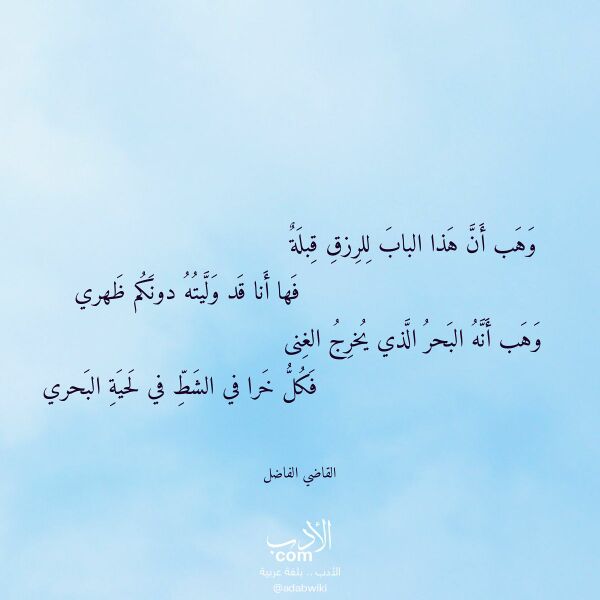 وَهَب أَنَّ هَذا البابَ لِلرِزقِ قِبلَةٌ
فَها أَنا قَد وَلَّيتُهُ دونَكُم ظَهري
وَهَب أَنَّهُ البَحرُ الَّذي يُخرِجُ الغِنى
فَكُلُّ خَرا في الشَطِّ في لَحيَةِ البَحري
القاضي الفاضل
الأدب
com
الأدب .. بلغة عربية
@adabwiki